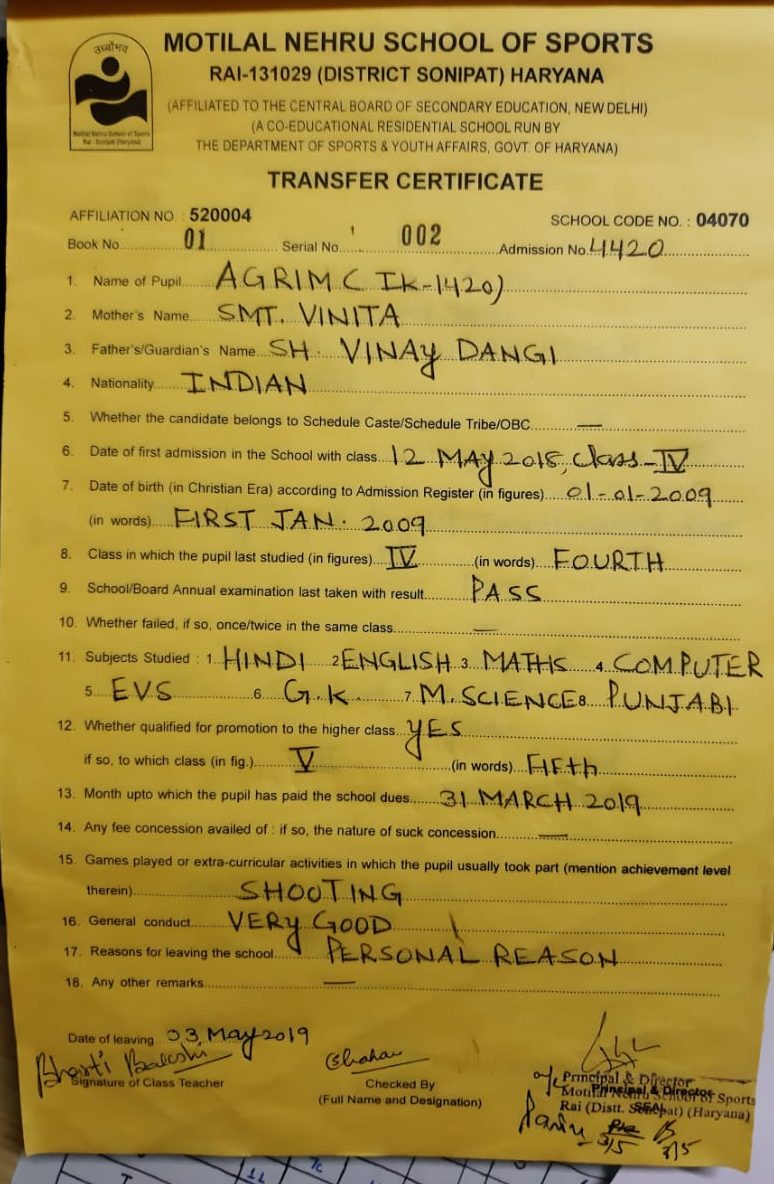 ऊर्ध्वोभव
Motilal Nehru School of Sports
Rai - Sonipat (Haryana)
MOTILAL NEHRU SCHOOL OF SPORTS
RAI-131029 (DISTRICT SONIPAT) HARYANA
(AFFILIATED TO THE CENTRAL BOARD OF SECONDARY EDUCATION, NEW DELHI)
(A CO-EDUCATIONAL RESIDENTIAL SCHOOL RUN BY
THE DEPARTMENT OF SPORTS & YOUTH AFFAIRS, GOVT. OF HARYANA)
TRANSFER CERTIFICATE
AFFILIATION NO. : 520004 SCHOOL CODE NO. : 04070
Book No. 01 Serial No. 002 Admission No. 4420
1. Name of Pupil AGRIM (IK-1420)
2. Mother's Name SMT. VINITA
3. Father's/Guardian's Name SH. VINAY DANGI
4. Nationality INDIAN
5. Whether the candidate belongs to Schedule Caste/Schedule Tribe/OBC —
6. Date of first admission in the School with class 12 MAY 2018, Class - IV
7. Date of birth (in Christian Era) according to Admission Register (in figures) 01-01-2009
(in words) FIRST JAN. 2009
8. Class in which the pupil last studied (in figures) IV (in words) FOURTH
9. School/Board Annual examination last taken with result PASS
10. Whether failed, if so, once/twice in the same class —
11. Subjects Studied : 1. HINDI 2 ENGLISH 3. MATHS 4. COMPUTER
5. EVS 6. G.K. 7. M. SCIENCE 8. PUNJABI
12. Whether qualified for promotion to the higher class YES
if so, to which class (in fig.) V (in words) FIFth
13. Month upto which the pupil has paid the school dues 31 MARCH 2019
14. Any fee concession availed of : if so, the nature of suck concession —
15. Games played or extra-curricular activities in which the pupil usually took part (mention achievement level
therein) SHOOTING
16. General conduct VERY GOOD
17. Reasons for leaving the school PERSONAL REASON
18. Any other remarks —
Date of leaving 03 May 2019
Bharti Bakshi
Signature of Class Teacher
Checked By
(Full Name and Designation)
Principal & Director
Principal & Director
Motilal Nehru School of Sports
SEAL
Rai (Distt. Sonepat) (Haryana)
3/5 3/5